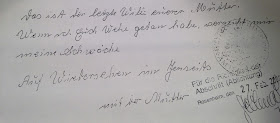 Das ist der letzte Wille einer Mutter.
Wenn ich Euch Wehe getan habe, verzeiht mir
meine Schwäche
Auf Wiedersehen im Jenseits
mit der Mutter
Für die
Abschrift (Ablichtung)
Rosenheim, den
27. Feb.